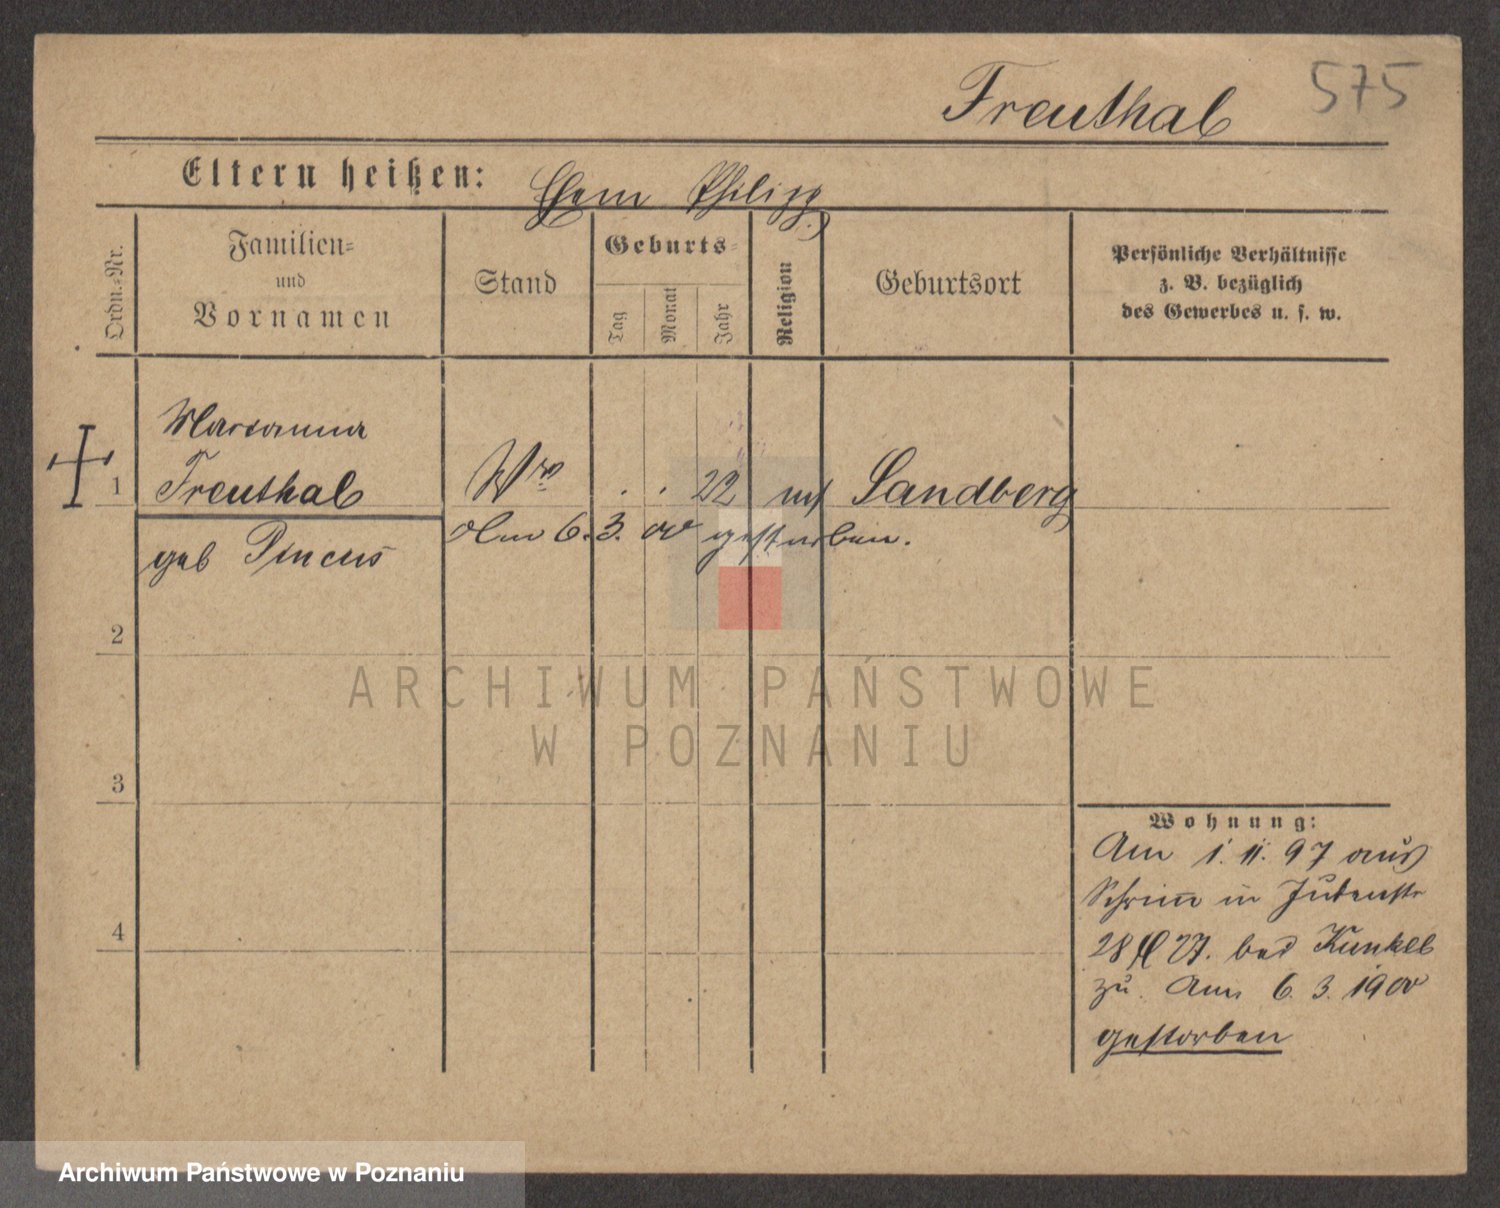 Freuthal 575
Eltern heißen: Ehem Philipp
Ordn.=Nr.
Familien=
und
Vornamen
Stand
Geburts=
Tag
Monat
Jahr
Religion
Geburtsort
Persönliche Verhältnisse
z. B. bezüglich
des Gewerbes u. s. w.
Marianna
1 Freuthal Wwe . . 22 mos Sandberg
Am 6. 3. 00 gestorben.
geb Pincus
2
ARCHIWUM PAŃSTWOWE
W POZNANIU
3
Wohnung:
Am 1. 11. 97 aus
Schrim in Judenstr
28 27. bei Kunkel
4
zu. Am 6. 3. 1900
gestorben
Archiwum Państwowe w Poznaniu